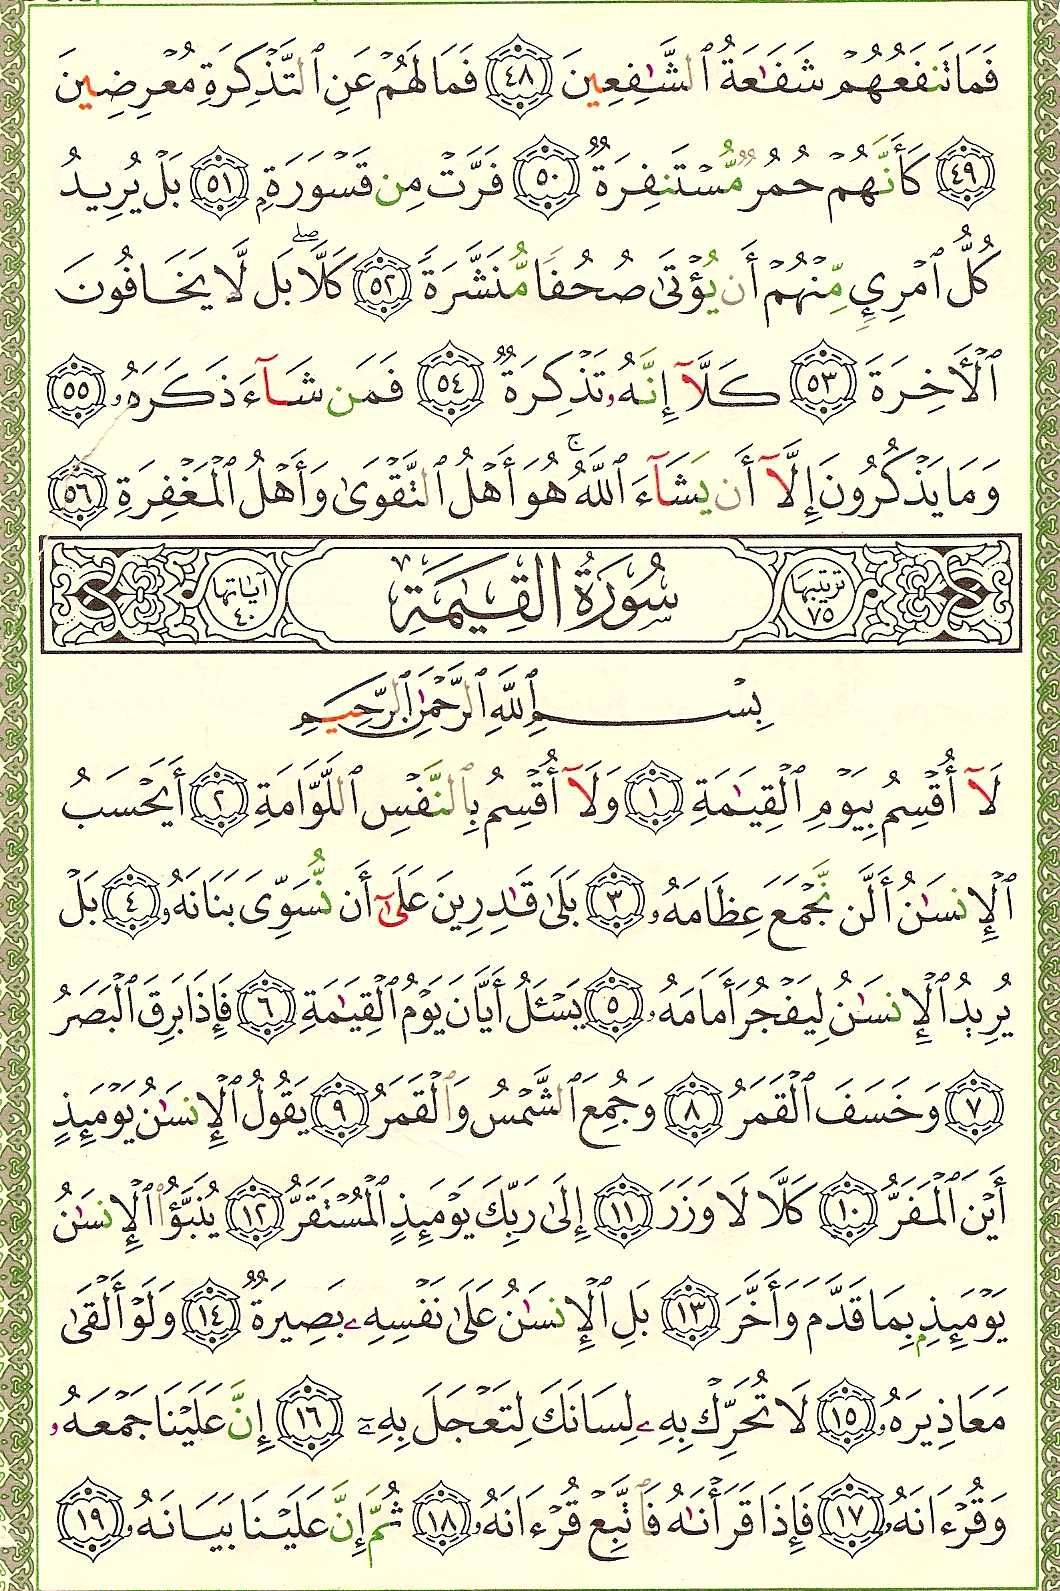 فَمَا تَنفَعُهُمْ شَفَٰعَةُ ٱلشَّٰفِعِينَ ٤٨ فَمَا لَهُمْ عَنِ ٱلتَّذْكِرَةِ مُعْرِضِينَ
٤٩ كَأَنَّهُمْ حُمُرٌ مُّسْتَنفِرَةٌ ٥٠ فَرَّتْ مِن قَسْوَرَةٍۭ ٥١ بَلْ يُرِيدُ
كُلُّ ٱمْرِئٍ مِّنْهُمْ أَن يُؤْتَىٰ صُحُفًا مُّنَشَّرَةً ٥٢ كَلَّا ۖ بَل لَّا يَخَافُونَ
ٱلْأَخِرَةَ ٥٣ كَلَّآ إِنَّهُۥ تَذْكِرَةٌ ٥٤ فَمَن شَآءَ ذَكَرَهُۥ ٥٥
وَمَا يَذْكُرُونَ إِلَّآ أَن يَشَآءَ ٱللَّهُ ۚ هُوَ أَهْلُ ٱلتَّقْوَىٰ وَأَهْلُ ٱلْمَغْفِرَةِ ٥٦
ترتيبها ٧٥ سُورَةُ الْقِيَٰمَةِ آياتها ٤٠
بِسْمِ ٱللَّهِ ٱلرَّحْمَٰنِ ٱلرَّحِيمِ
لَآ أُقْسِمُ بِيَوْمِ ٱلْقِيَٰمَةِ ١ وَلَآ أُقْسِمُ بِٱلنَّفْسِ ٱللَّوَّامَةِ ٢ أَيَحْسَبُ
ٱلْإِنسَٰنُ أَلَّن نَّجْمَعَ عِظَامَهُۥ ٣ بَلَىٰ قَٰدِرِينَ عَلَىٰٓ أَن نُّسَوِّىَ بَنَانَهُۥ ٤ بَلْ
يُرِيدُ ٱلْإِنسَٰنُ لِيَفْجُرَ أَمَامَهُۥ ٥ يَسْـَٔلُ أَيَّانَ يَوْمُ ٱلْقِيَٰمَةِ ٦ فَإِذَا بَرِقَ ٱلْبَصَرُ
٧ وَخَسَفَ ٱلْقَمَرُ ٨ وَجُمِعَ ٱلشَّمْسُ وَٱلْقَمَرُ ٩ يَقُولُ ٱلْإِنسَٰنُ يَوْمَئِذٍ
أَيْنَ ٱلْمَفَرُّ ١٠ كَلَّا لَا وَزَرَ ١١ إِلَىٰ رَبِّكَ يَوْمَئِذٍ ٱلْمُسْتَقَرُّ ١٢ يُنَبَّؤُا۟ ٱلْإِنسَٰنُ
يَوْمَئِذٍۭ بِمَا قَدَّمَ وَأَخَّرَ ١٣ بَلِ ٱلْإِنسَٰنُ عَلَىٰ نَفْسِهِۦ بَصِيرَةٌ ١٤ وَلَوْ أَلْقَىٰ
مَعَاذِيرَهُۥ ١٥ لَا تُحَرِّكْ بِهِۦ لِسَانَكَ لِتَعْجَلَ بِهِۦٓ ١٦ إِنَّ عَلَيْنَا جَمْعَهُۥ
وَقُرْءَانَهُۥ ١٧ فَإِذَا قَرَأْنَٰهُ فَٱتَّبِعْ قُرْءَانَهُۥ ١٨ ثُمَّ إِنَّ عَلَيْنَا بَيَانَهُۥ ١٩